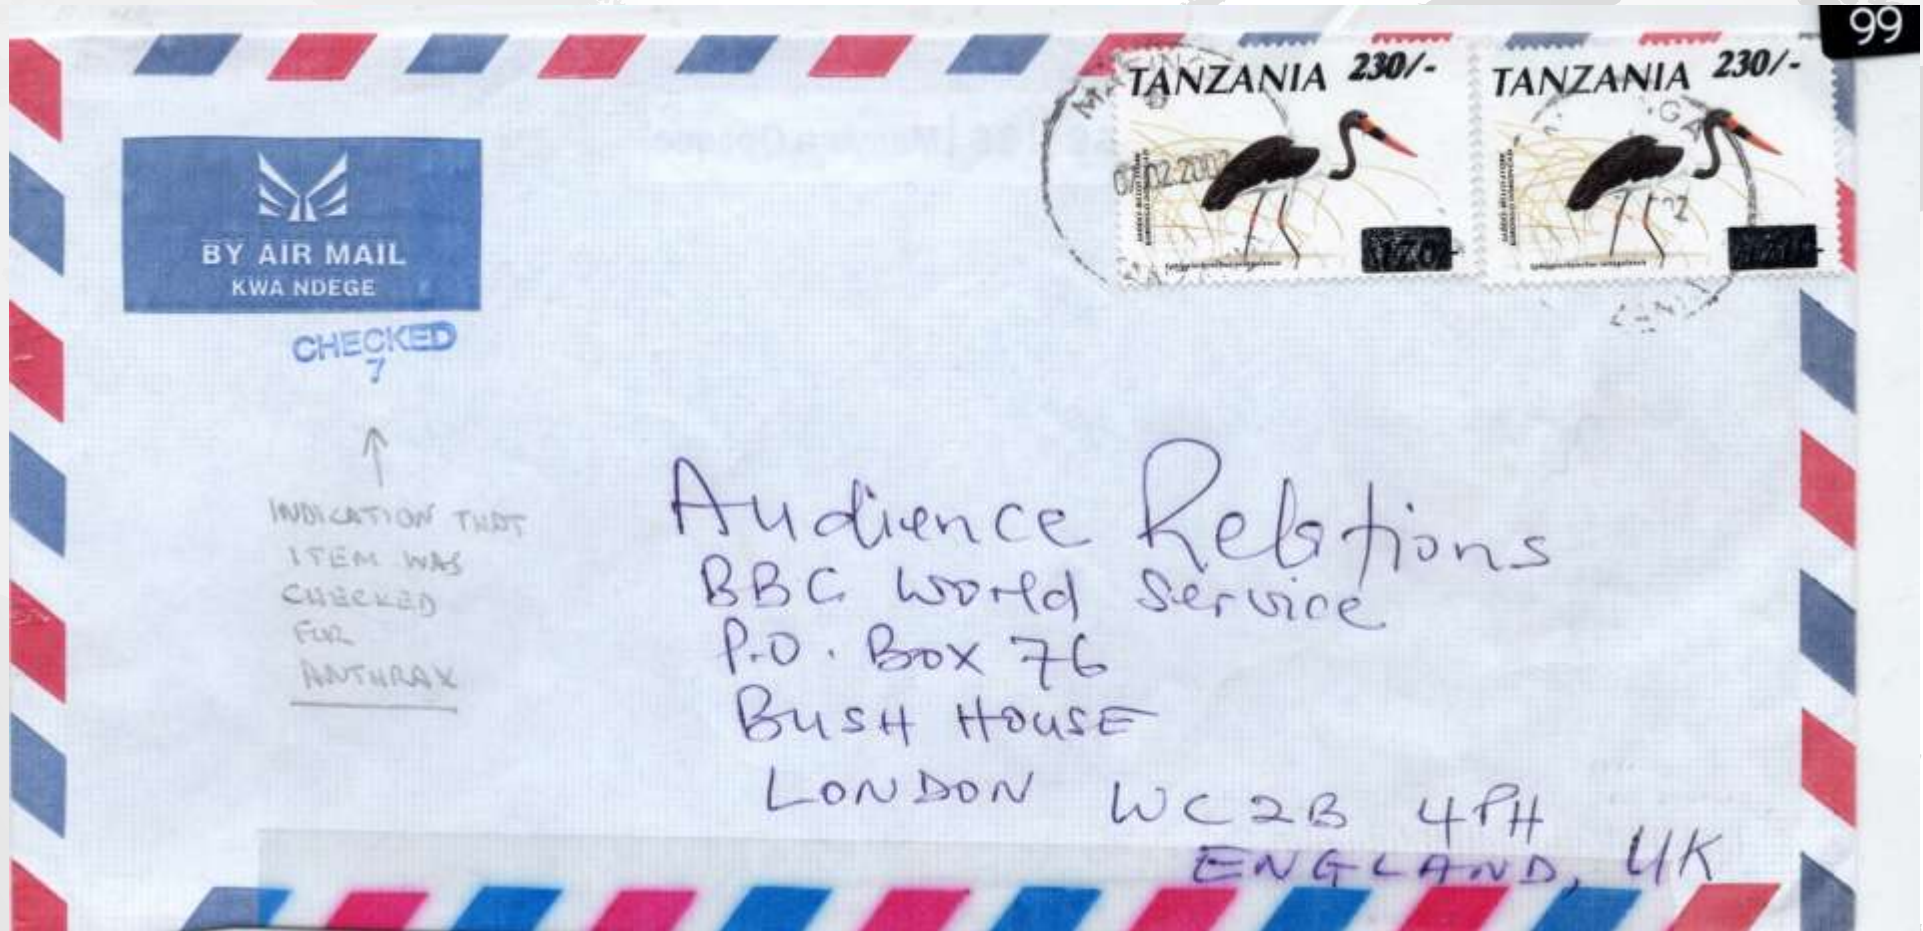 99
TANZANIA 230/-
TANZANIA 230/-
07.02.2002
BY AIR MAIL
KWA NDEGE
CHECKED
7
INDICATION THAT
ITEM WAS
CHECKED
FOR
ANTHRAX
Audience Relations
BBC World Service
P.O. Box 76
BUSH HOUSE
LONDON WC2B 4PH
ENGLAND, UK